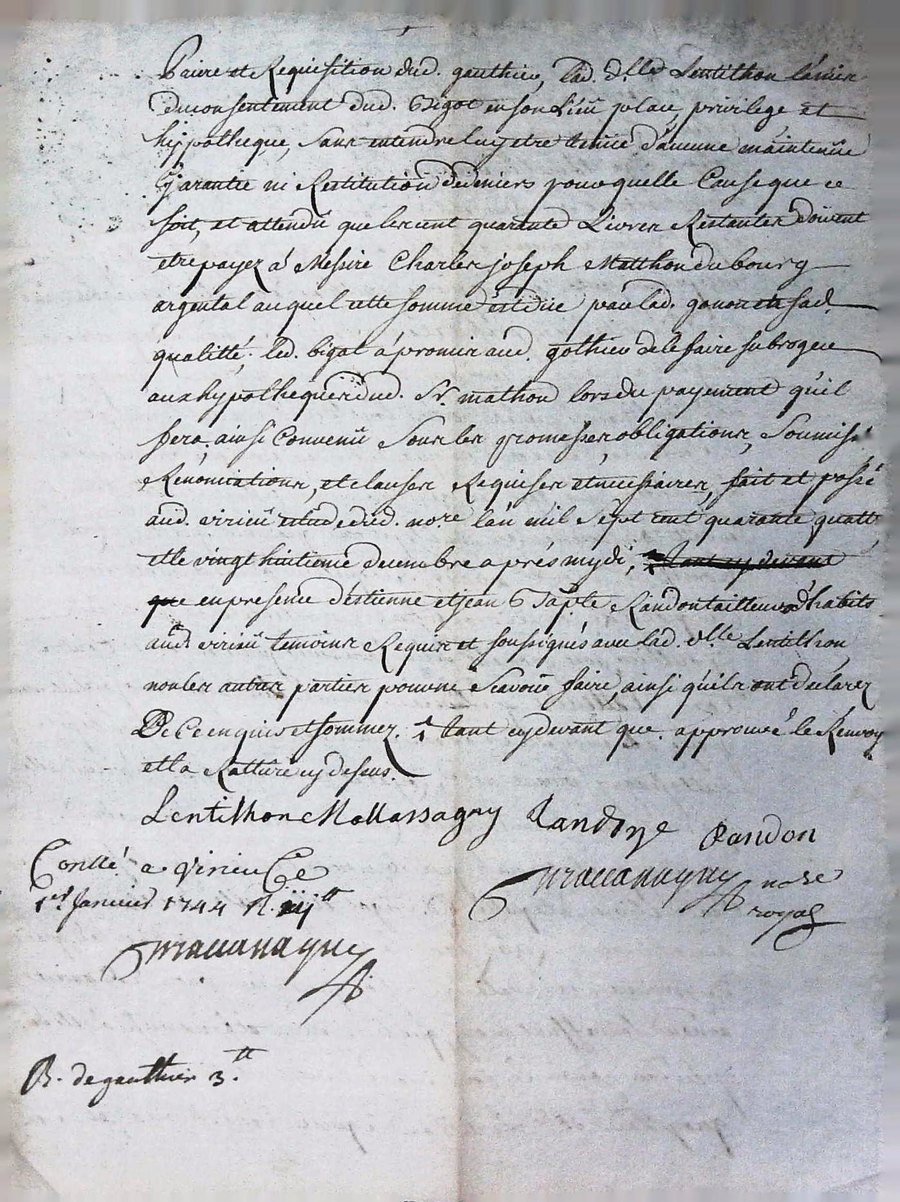 Priere et Requisition dud. gauthier, lad. dlle Lentilhon l'a mis
du consentement dud. Bigot en son lieu, place, privilege et
hyppotheque, sans entendre luy etre tenüe d'aucune maintenüe
Garantie ni Restitution dedeniers pour quelle Cause que ce
soit, et attendu que les cent quarante Livres Restantes doivent
etre payez á Messire Charles joseph Matthon du bourg
argental auquel cette somme est düe par lad. gonon en sad.
qualitté. led. bigot á promis aud. gothier de le faire subroger
aux hypotheques dud. Sr. mathon lors du payement qu'il
fera, ainsi Convenü Sous les promesses, obligations, Soumiss.
Rénontiations, et clauses Requises et necessaires, fait et passé
aud. virieü etude dud. nore l'an mil sept cent quarante quatt
et le vingt huitieme decembre aprés mydi, tant cy devant
que en presence d'éstienne et jean Bapte Randon tailleurs d'habits
aud. virieü temoins Requis et soussignés avec lad. dlle Lentilhon,
non les autres parties pour ne Scavoir faire, ainsi qu'ils ont déclarez
De Ce enquis et sommez. tant cy devant que. approuvé le Renvoy
et la Ratture cy dessus.
Lentilhon Mallassagny Randon Randon
Conllé a Virieu Ce
1er Janvier 1744 R iij tt
nore
royal
R. de gauthier 3.tt